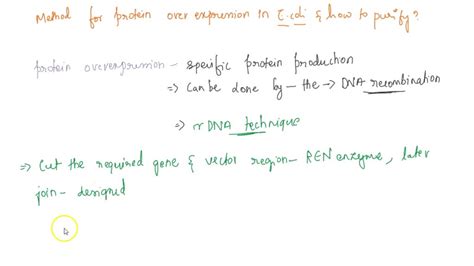 Method for protein over expression in E.coli & how to purify?
protein overexpression - specific protein production
⇒ Can be done by - the → DNA recombination
⇒ rDNA technique
⇒ Cut the required gene & vector region - REN enzyme, later
join - designed